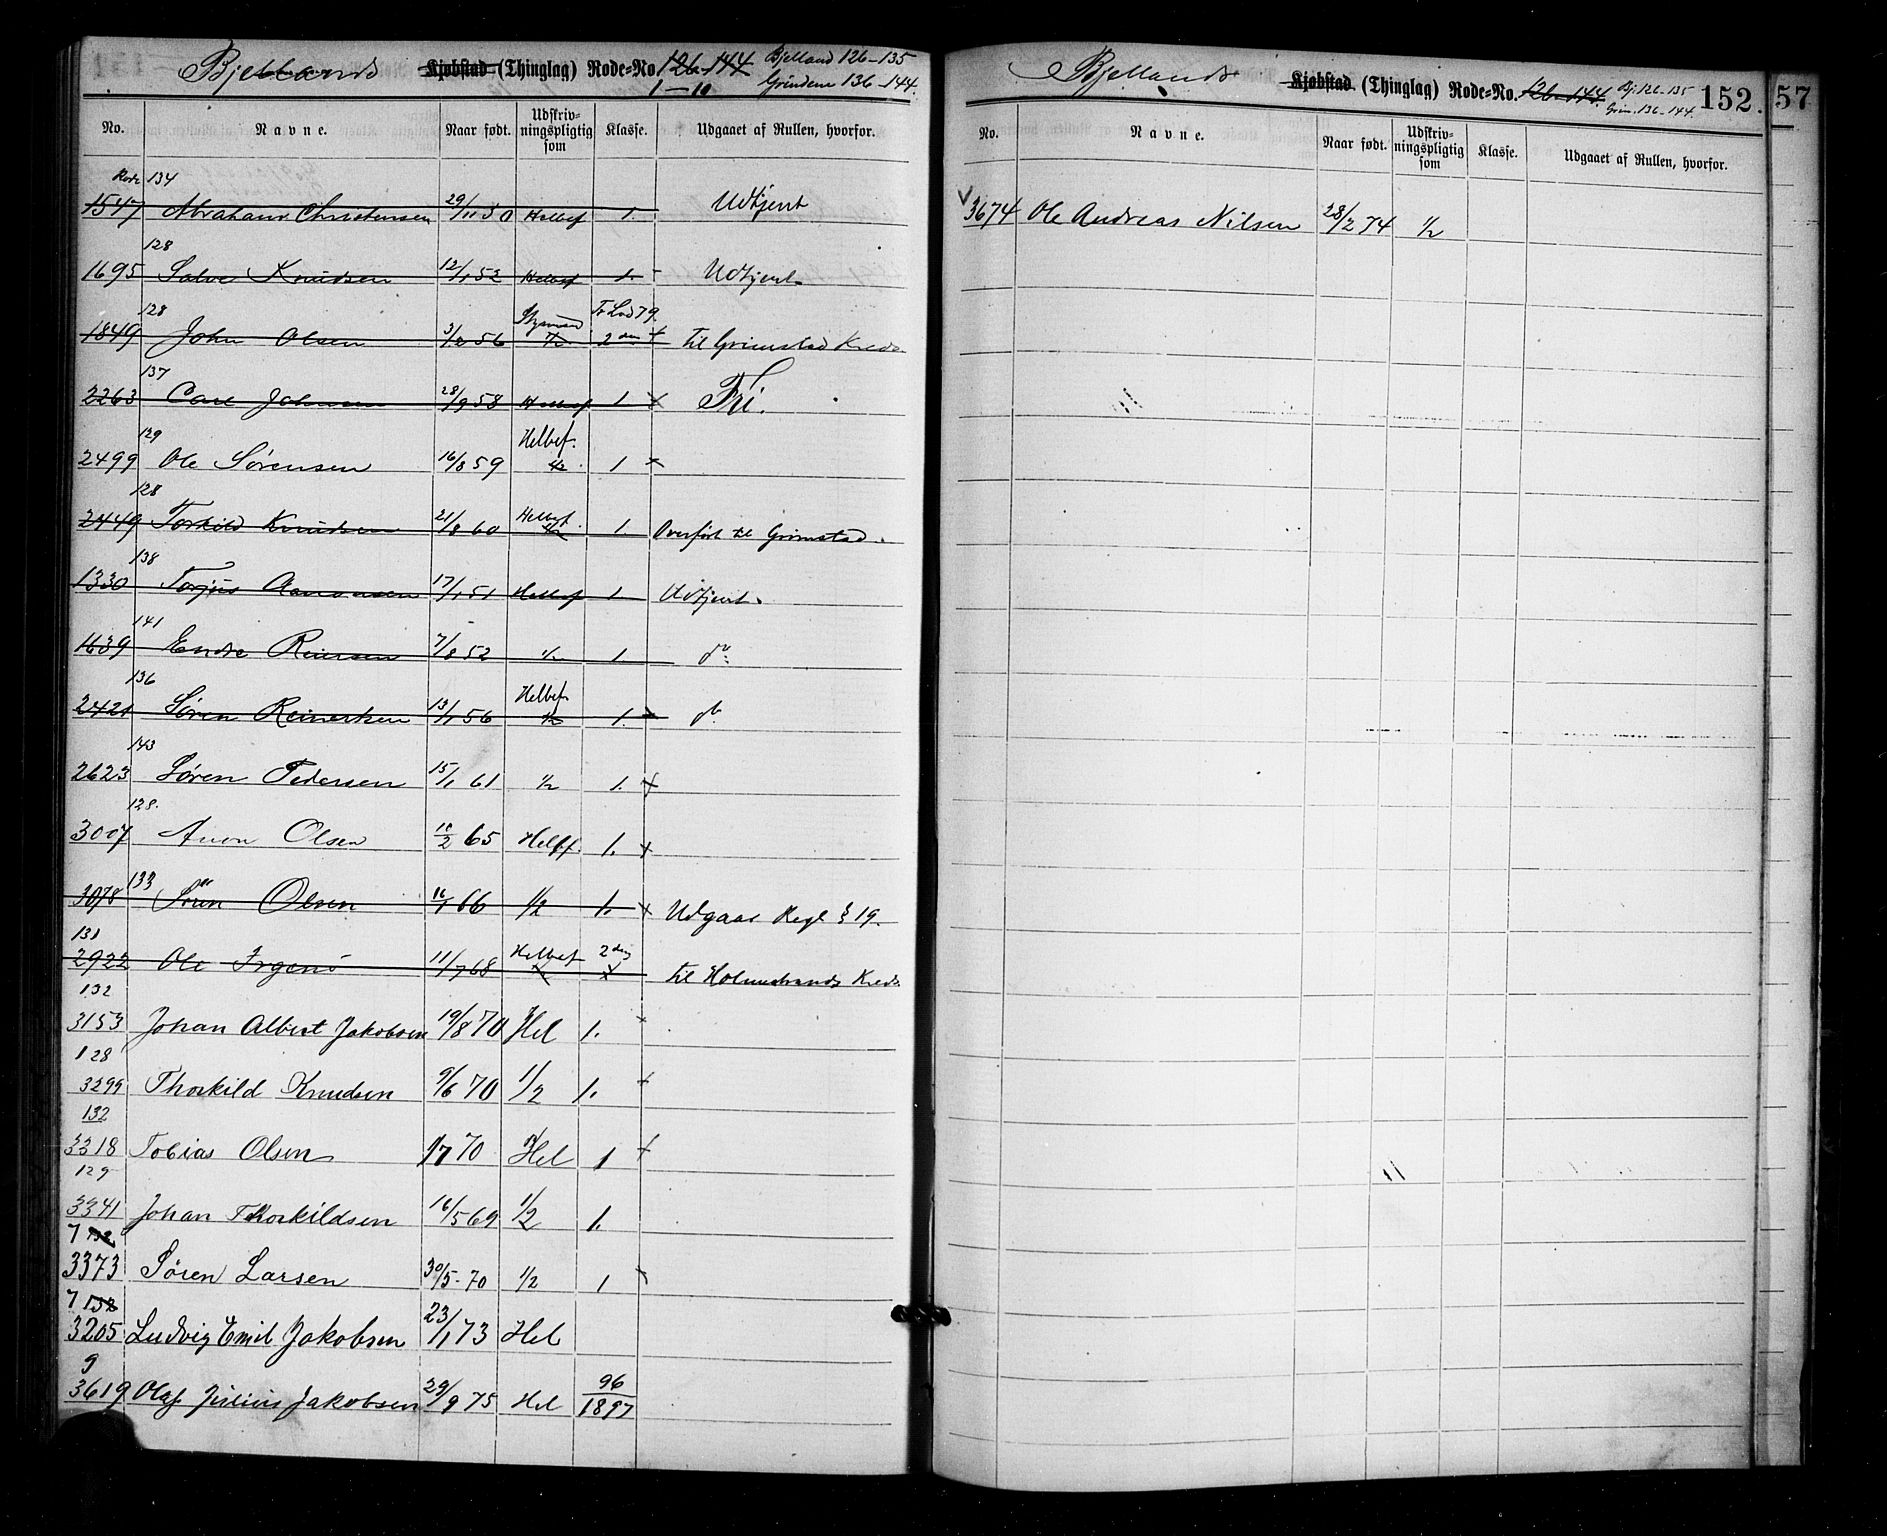 Bjellands Kjøbstad (Thinglag) Rode-No. 126-144 Bjelland 126-135
1-10 Grindem 136-144.
No. Navne. Naar født. Udskrivningspligtig som Klasse. Udgaaet af Rullen, hvorfor.
Rode 134
1547 Abraham Christensen 29/11 50 Helbef 1. Udtjent
128
1695 Salve Knudsen 12/1 52 Helbef 1. - Udtjent.
128
1849 John Olsen 3/2 56 Styrmand 1/2 Fr Lod 79. 2den + til Grimstad Kreds.
137
2263 Carl Johnsen 28/9 58 Helbef 1 x Fri.
129
2499 Ole Sørensen 16/8 59 Helbef. 1/2 1 x
128
2449 Torkild Knudsen 21/8 60 Helbef. 1/2 1. Overført til Grimstad.
138
1330 Torjus 17/1 51 Helbef 1. Udtjent.
141
1639 Endre Reiersen 7/8 52 1/2 1. do
136
2421 Søren Reinertsen 13/1 56 Helbef 1/2 1. x do
143
2623 Søren Pedersen 15/1 61 1/2 1. x
128.
3007 Aven Olsen 10/2 65 Helbf. 1. x
133
3078 Sören Olsen 16/1 66 1/2 1. x Udgaar Regl § 19.
131
2922 Ole Irgens 11/7 68 Helbef 1/2 2den x til Holmestrands Kreds
132
3153 Johan Albert Jakobsen 19/8 70 Hel 1. x
128
3299 Thorkild Knudsen 9/6 70 1/2 1. +
132
3318 Tobias Olsen 1/7 70 Hel 1 +
129
3341 Johan Thorkildsen 16/5 69 1/2 1.
7 132
3373 Søren Larsen 30/5-70 1/2 1 x
7 132
3205 Ludvig Emil Jakobsen 23/1 73 Hel
9
3619 Olaf Julius Jakobsen 29/9 75 Hel 96/1897
Bjellands Kjøbstad (Thinglag) Rode-No. 126-144 Bj. 126-135 152. 57
Grim. 136-144.
No. Navne. Naar født. Udskrivningspligtig som Klasse. Udgaaet af Rullen, hvorfor.
v 3674 Ole Andreas Nilsen 28/2 74 1/2